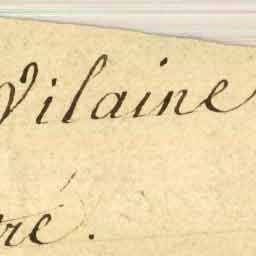 Vilaine
ré.